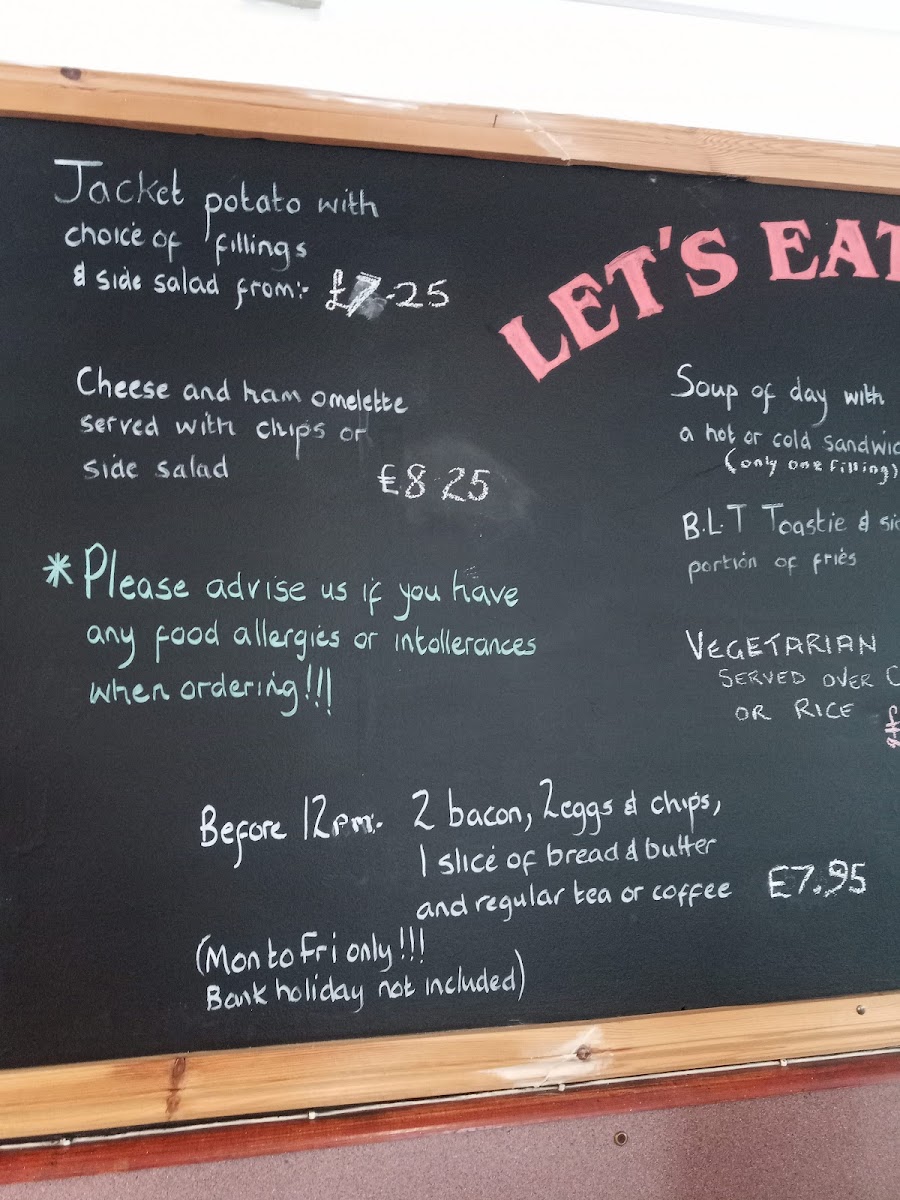 Jacket potato with
choice of fillings
& side salad from:- £7.25
Cheese and ham omelette
served with chips or
side salad
£8.25
*Please advise us if you have
any food allergies or intollerances
when ordering!!!
LET'S EAT
Soup of day with
a hot or cold sandwic
(only one filling)
B.L.T Toastie & sid
portion of fries
VEGETARIAN
SERVED OVER C
OR RICE
£
Before 12pm:- 2 bacon, 2eggs & chips,
1 slice of bread & butter
and regular tea or coffee £7.95
(Mon to Fri only!!!
Bank holiday not included)